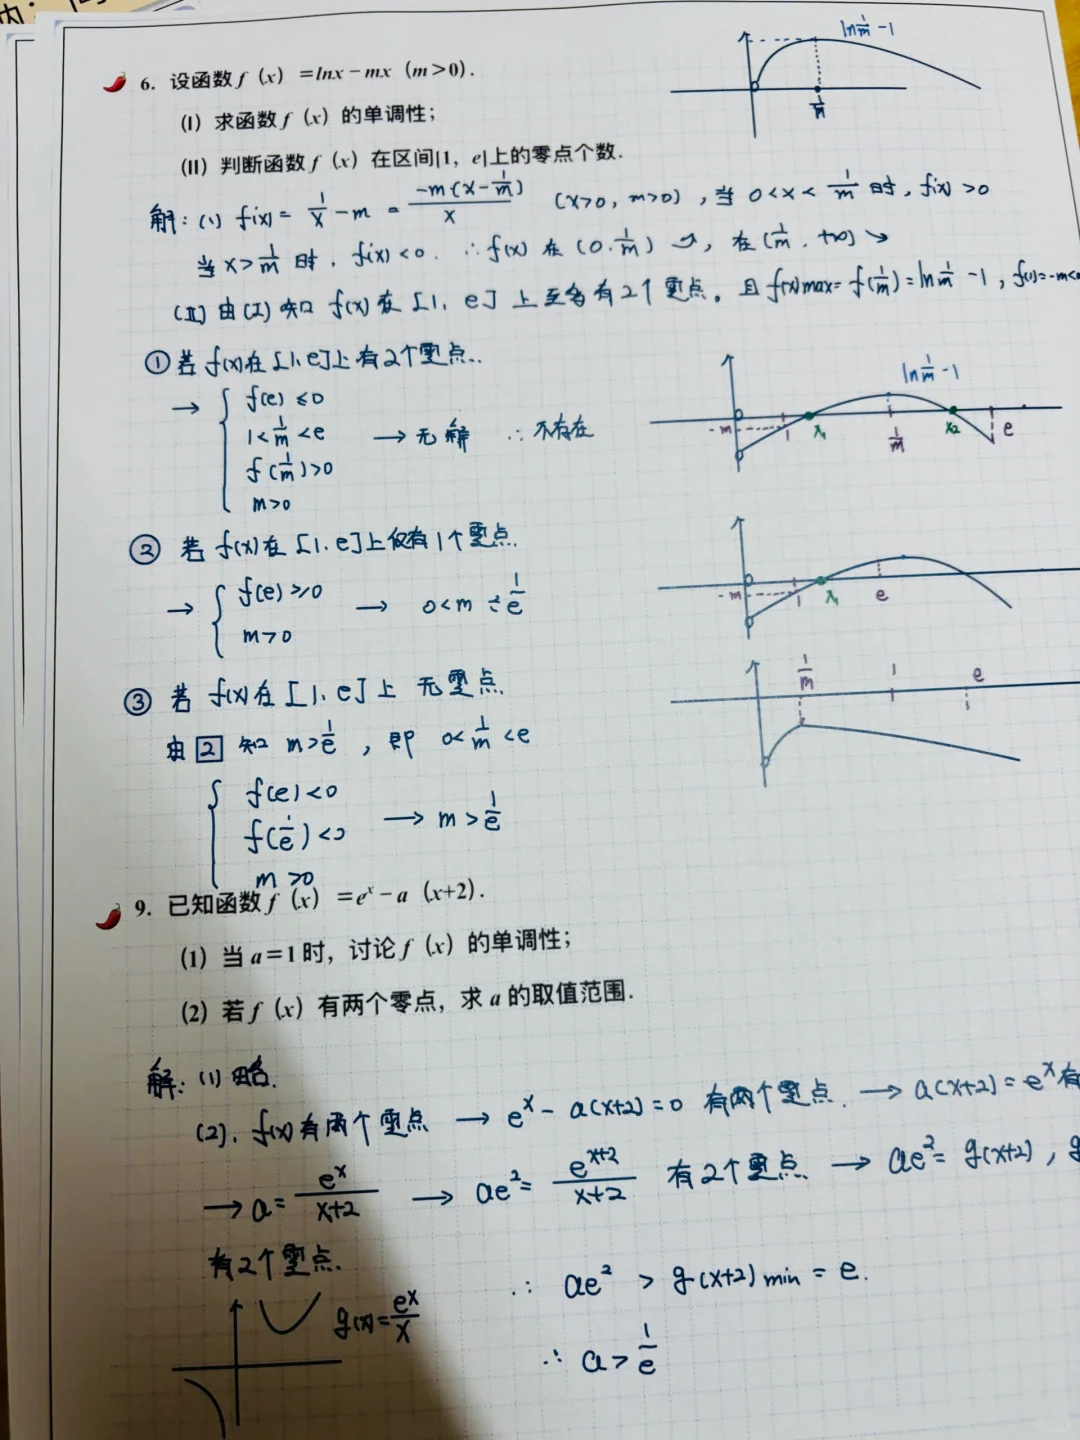 6. 设函数 f（x）=lnx－mx（m＞0）.
ln1/m -1
1/m
(Ⅰ) 求函数 f（x）的单调性；
(Ⅱ) 判断函数 f（x）在区间|1，e|上的零点个数.
解：(1) f(x) = 1/x - m = -m(x-1/m)/x (x>0, m>0)，当 0<x<1/m 时，f(x)>0
当 x>1/m 时，f(x)<0. ∴f(x) 在 (0.1/m) ↗，在(1/m, +∞) ↘
(Ⅱ) 由(Ⅰ)知 f(x)在[1, e]上至多有2个零点。且 f(x)max = f(1/m) = ln1/m -1，f(1)=-m<
① 若 f(x)在[1, e]上有2个零点..
→ { f(e) ≤0
1<1/m<e → 无解 ∴不存在
f(1/m)>0
m>0
ln1/m -1
-m 1 x₁ 1/m x₂ e
② 若 f(x)在[1, e]上仅有1个零点.
→ { f(e) ≥0 → 0<m≤1/e
m>0
-m 1 x₁ e
③ 若 f(x)在[1, e]上 无零点.
由[2]知 m>1/e，即 0<1/m<e
{ f(e)<0
f(1/e)<0 → m>1/e
m>0
1/m 1 e
9. 已知函数 f（x）=eˣ－a（x+2）.
(1) 当 a=1 时，讨论 f（x）的单调性；
(2) 若 f（x）有两个零点，求 a 的取值范围.
解：(1) 略.
(2). f(x)有两个零点 → eˣ - a(x+2)=0 有两个零点. → a(x+2)=eˣ有
→ a= eˣ/x+2 → ae²= eˣ⁺²/x+2 有2个零点 → ae²= g(x+2)，g
有2个零点.
∴ ae² > g(x+2)min = e.
g(x)=eˣ/x
∴ a>1/e